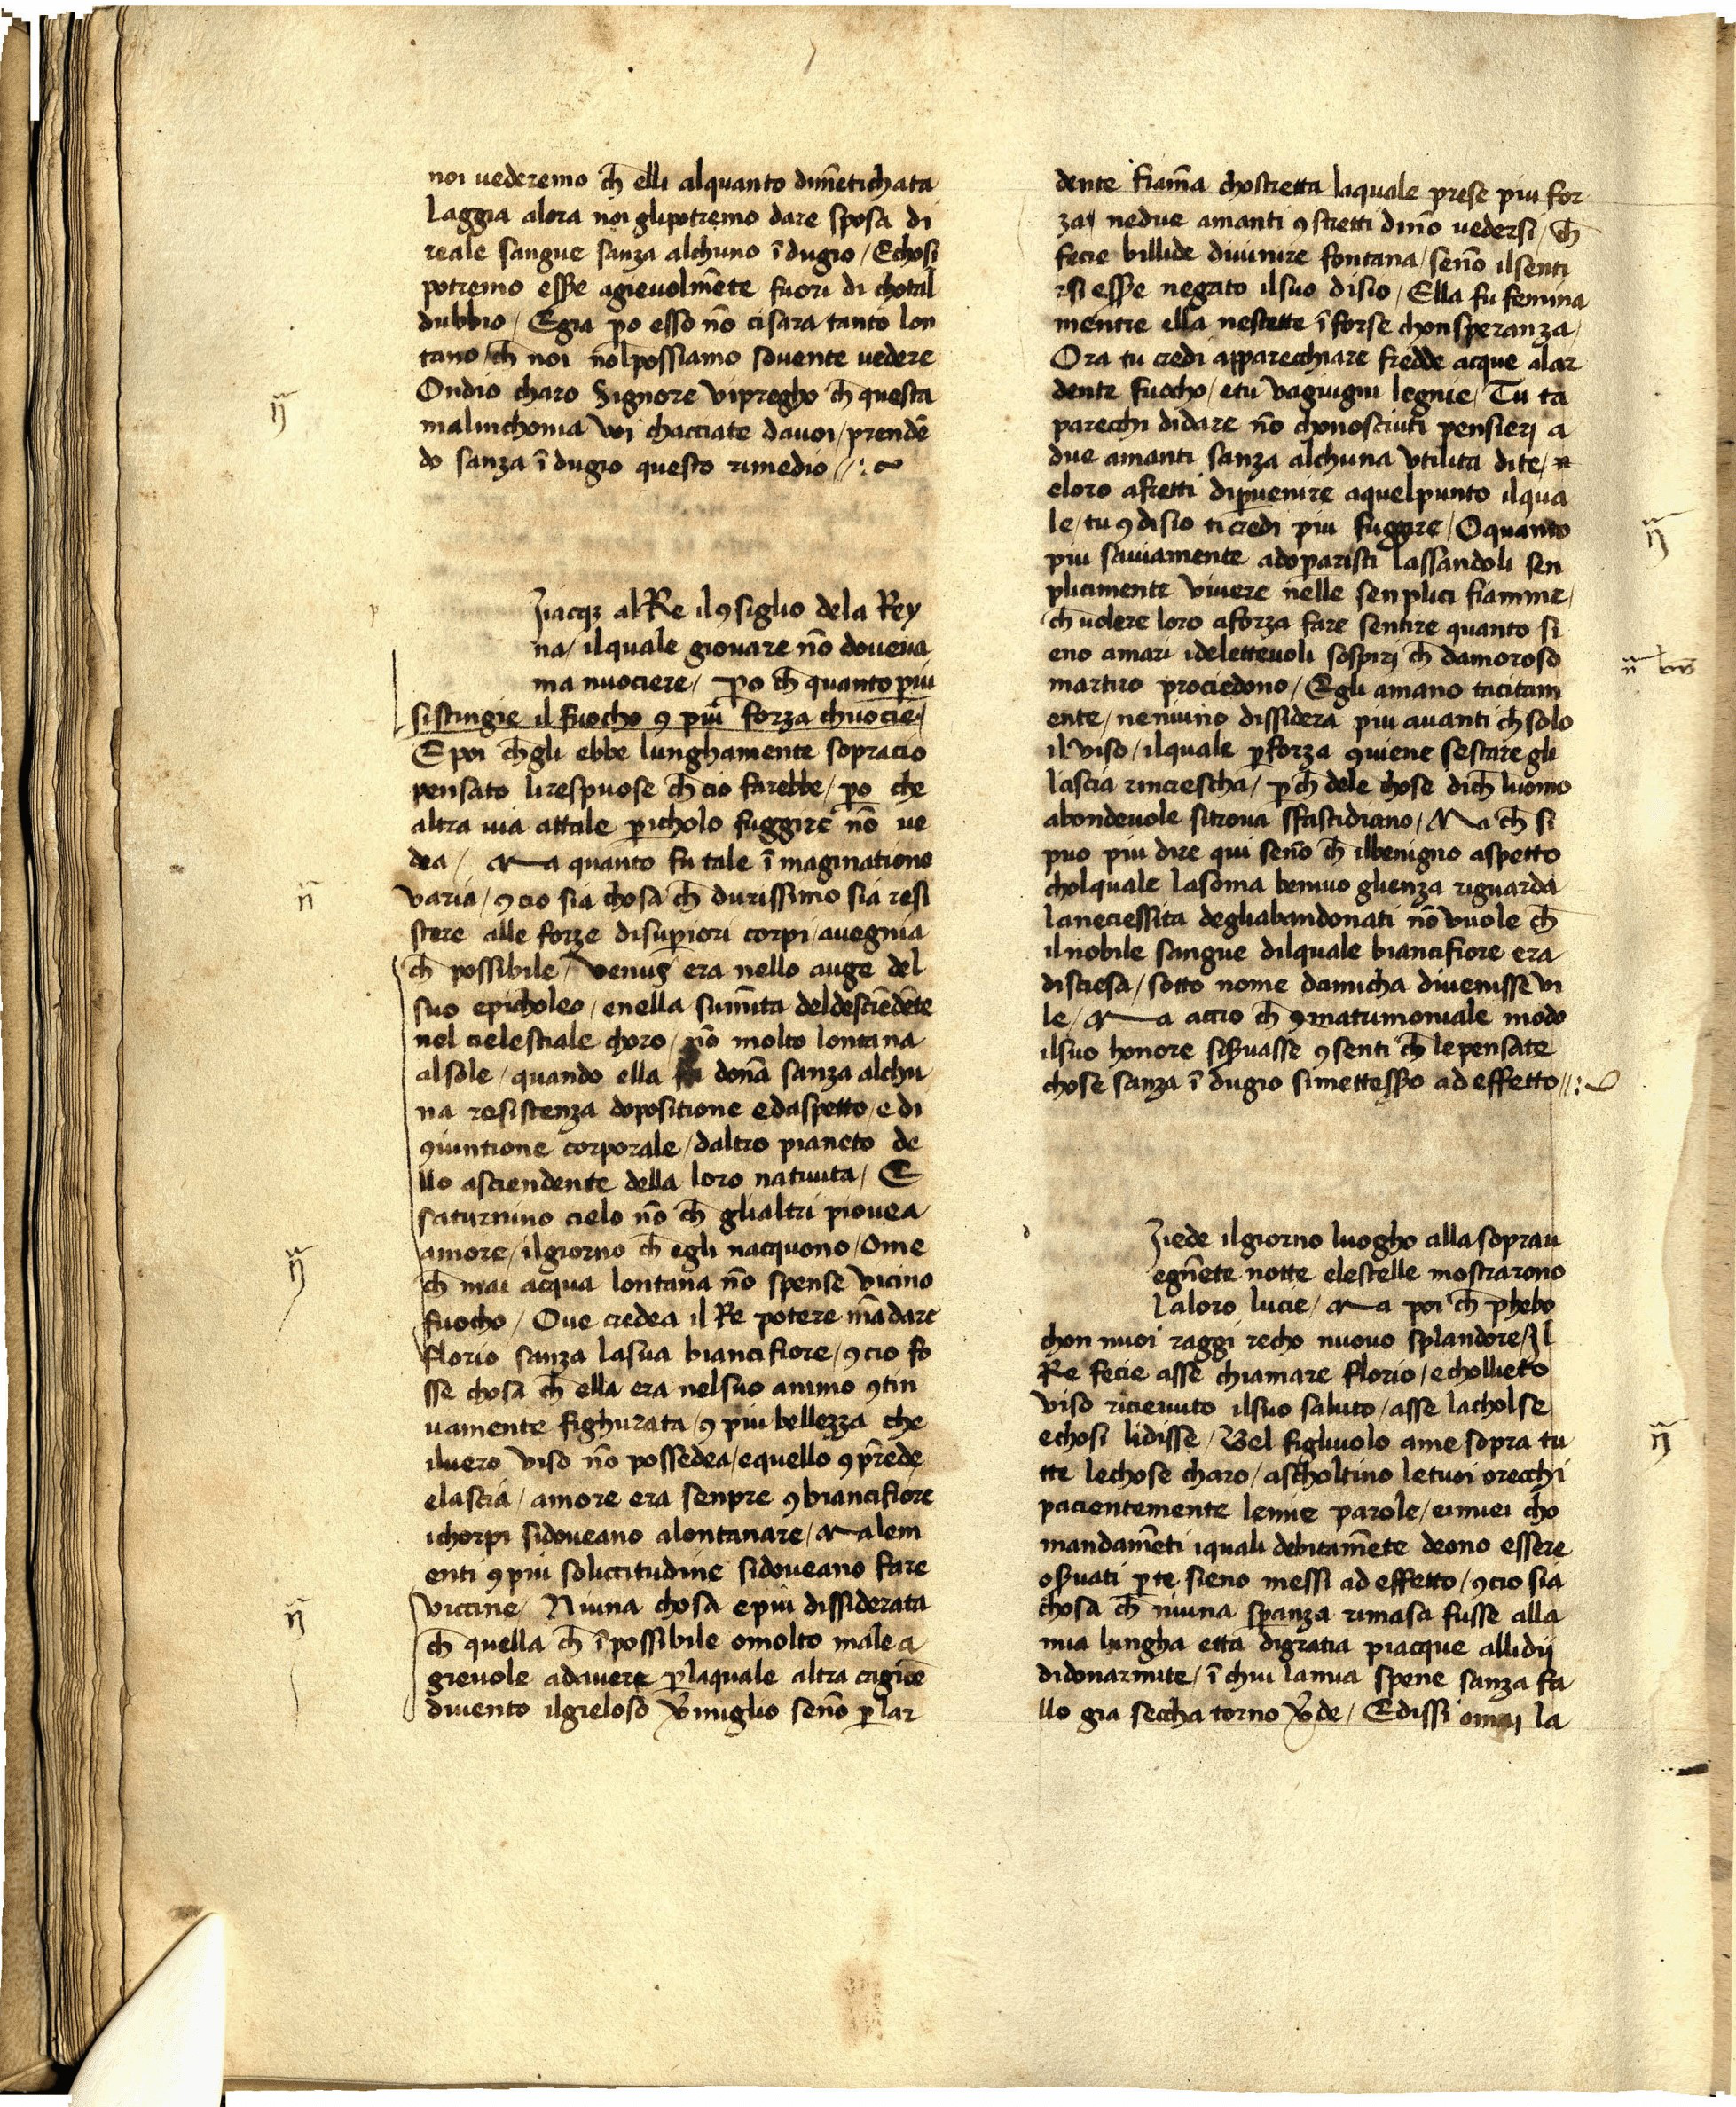 noi uederemo ch̅ elli alquanto dime̅tichata
laggia alora noi glipotremo dare sposa di
reale sangue sanza alchuno i̅dugio / Echosi
potremo esse agieuolme̅te fuori di chotal
dubbio / Egia po esso no̅ cisara tanto lon
tano / ch̅ noi nolpossiamo souente uedere
Ondio charo Signore vipregho ch̅ questa
malinchonia voi chacciate dauoi / prende̅
do sanza i̅dugio questo rimedio //:~
p
Jiacqʒ al Re il ꝯsiglio dela Rey
na / ilquale giouare no̅ doueua
ma nuociere / ꝑo ch̅ quanto piu
sistingie il fuocho ꝯ piu forza chuocie /
E poi ch̅ gli ebbe lunghamente sopracio
pensato lirespuose ch̅ cio farebbe / ꝑo che
altra uia attale ꝑicholo fuggire no̅ ue
dea / Ma quanto fu tale i̅maginatione
varia / ꝯcio sia chosa ch̅ durissimo sia resi
stere alle forze disuꝑiori corpi / auegnia
ch̅ possibile / venus era nello auge del
suo epicholeo / enella sum̅ita deldescie̅de̅te
nel cielestiale choro / no̅ molto lontana
alsole / quando ella fu don̅a sanza alchu
na resistenza dopositione edaspetto / edi
ꝯiuntione corporale / daltro pianeto de
llo asciendente della loro natiuita / E
saturnino cielo no̅ ch̅ glialtri piouea
amore / ilgiorno ch̅ egli nacquono / Ome
ch̅ mai acqua lontana no̅ spense vicino
fuocho / Oue credea il Re potere ma̅dare
florio sanza lasua biancifiore / ꝯcio fo
sse chosa ch̅ ella era nelsuo animo ꝯtin
uamente fighurata / ꝯ piu bellezza che
iluero viso no̅ possedea / equello ꝯpre̅de
elascia / amore era senpre ꝯ biancifiore
ichorpi sidoueano alontanare / Ma lem
enti ꝯ piu solicitudine sidoueano fare
viccine / Niuna chosa epiu dissiderata
ch̅ quella ch̅ i̅possibile omolto male a
gieuole adauere ꝑlaquale altra cagio̅e
diuento ilgieloso v̅miglio seno̅ ꝑ lar
dente fiam̅a chostretta laquale prese piu for
za / nedue amanti ꝯstretti dino̅ uedersi / ch̅
fecie billide diuinire fontana / seno̅ ilsenti
rsi esse negato ilsuo disio / Ella fu femina
mentre ella nestette i̅ forse chonsperanza /
Ora tu credi apparecchiare fredde acque alar
dente fuocho / etu vagiugni legnie / Tu ta
parecchi didare no̅ chonosciuti pensieri a
due amanti sanza alchuna vtilita dite /
eloro afretti diꝑuenire aquelpunto ilqua
le / tu ꝯ disio ticredi piu fuggire / Oquanto
piu sauiamente adoꝑaristi lassandoli sen
plicimente viuere nelle senplici fiamme /
ch̅ uolere loro aforza fare sentire quanto si
eno amari idelettevoli sospiri ch̅ damoroso
martiro prociedono / Egli amano tacitam
ente / neniuno dissidera piu auanti ch̅ solo
il viso / ilquale ꝑ forza ꝯuiene sestare gli
lascia rincrescha / ꝑch̅ dele chose dich̅ luomo
abondeuole sitroua sfastidiano / Ma ch̅ si
puo piu dire qui seno̅ ch̅ ilbenigno aspetto
cholquale lasoma beniuoglienza riguarda
laneciessita degliabandonati no̅ vuole ch̅
ilnobile sangue dilquale biancifiore era
disciesa / sotto nome damicha diuenisse vi
le / Ma accio ch̅ ꝯ matrimoniale modo
ilsuo honore sis̅uasse ꝯsenti ch̅ lepensate
chose sanza i̅dugio simettesso ad effetto //:~
Jiede ilgiorno luogho alla soprau
egne̅te notte elestelle mostrarono
laloro lucie / Ma poi ch̅ phebo
chon nuoi raggi recho nuouo splandore / Il
Re fecie asse chiamare florio / echollieto
viso riceuuto ilsuo saluto / asse lacholse
echosi lidisse / Bel figliuolo ame sopra tu
tte lechose charo / ascholtino letuoi orecchi
pacientemente lemie parole / eimiei cho
mandame̅ti iquali debitame̅te deono essere
os̅uati ꝑ te sieno messi ad effetto / ꝯcio sia
chosa ch̅ niuna sꝑanza rimasa fusse alla
mia lungha etta digratia piacque allidij
didonarmite / i̅ chui lamia spene sanza fa
llo gia seccha torno v̅de / Edissi omai la